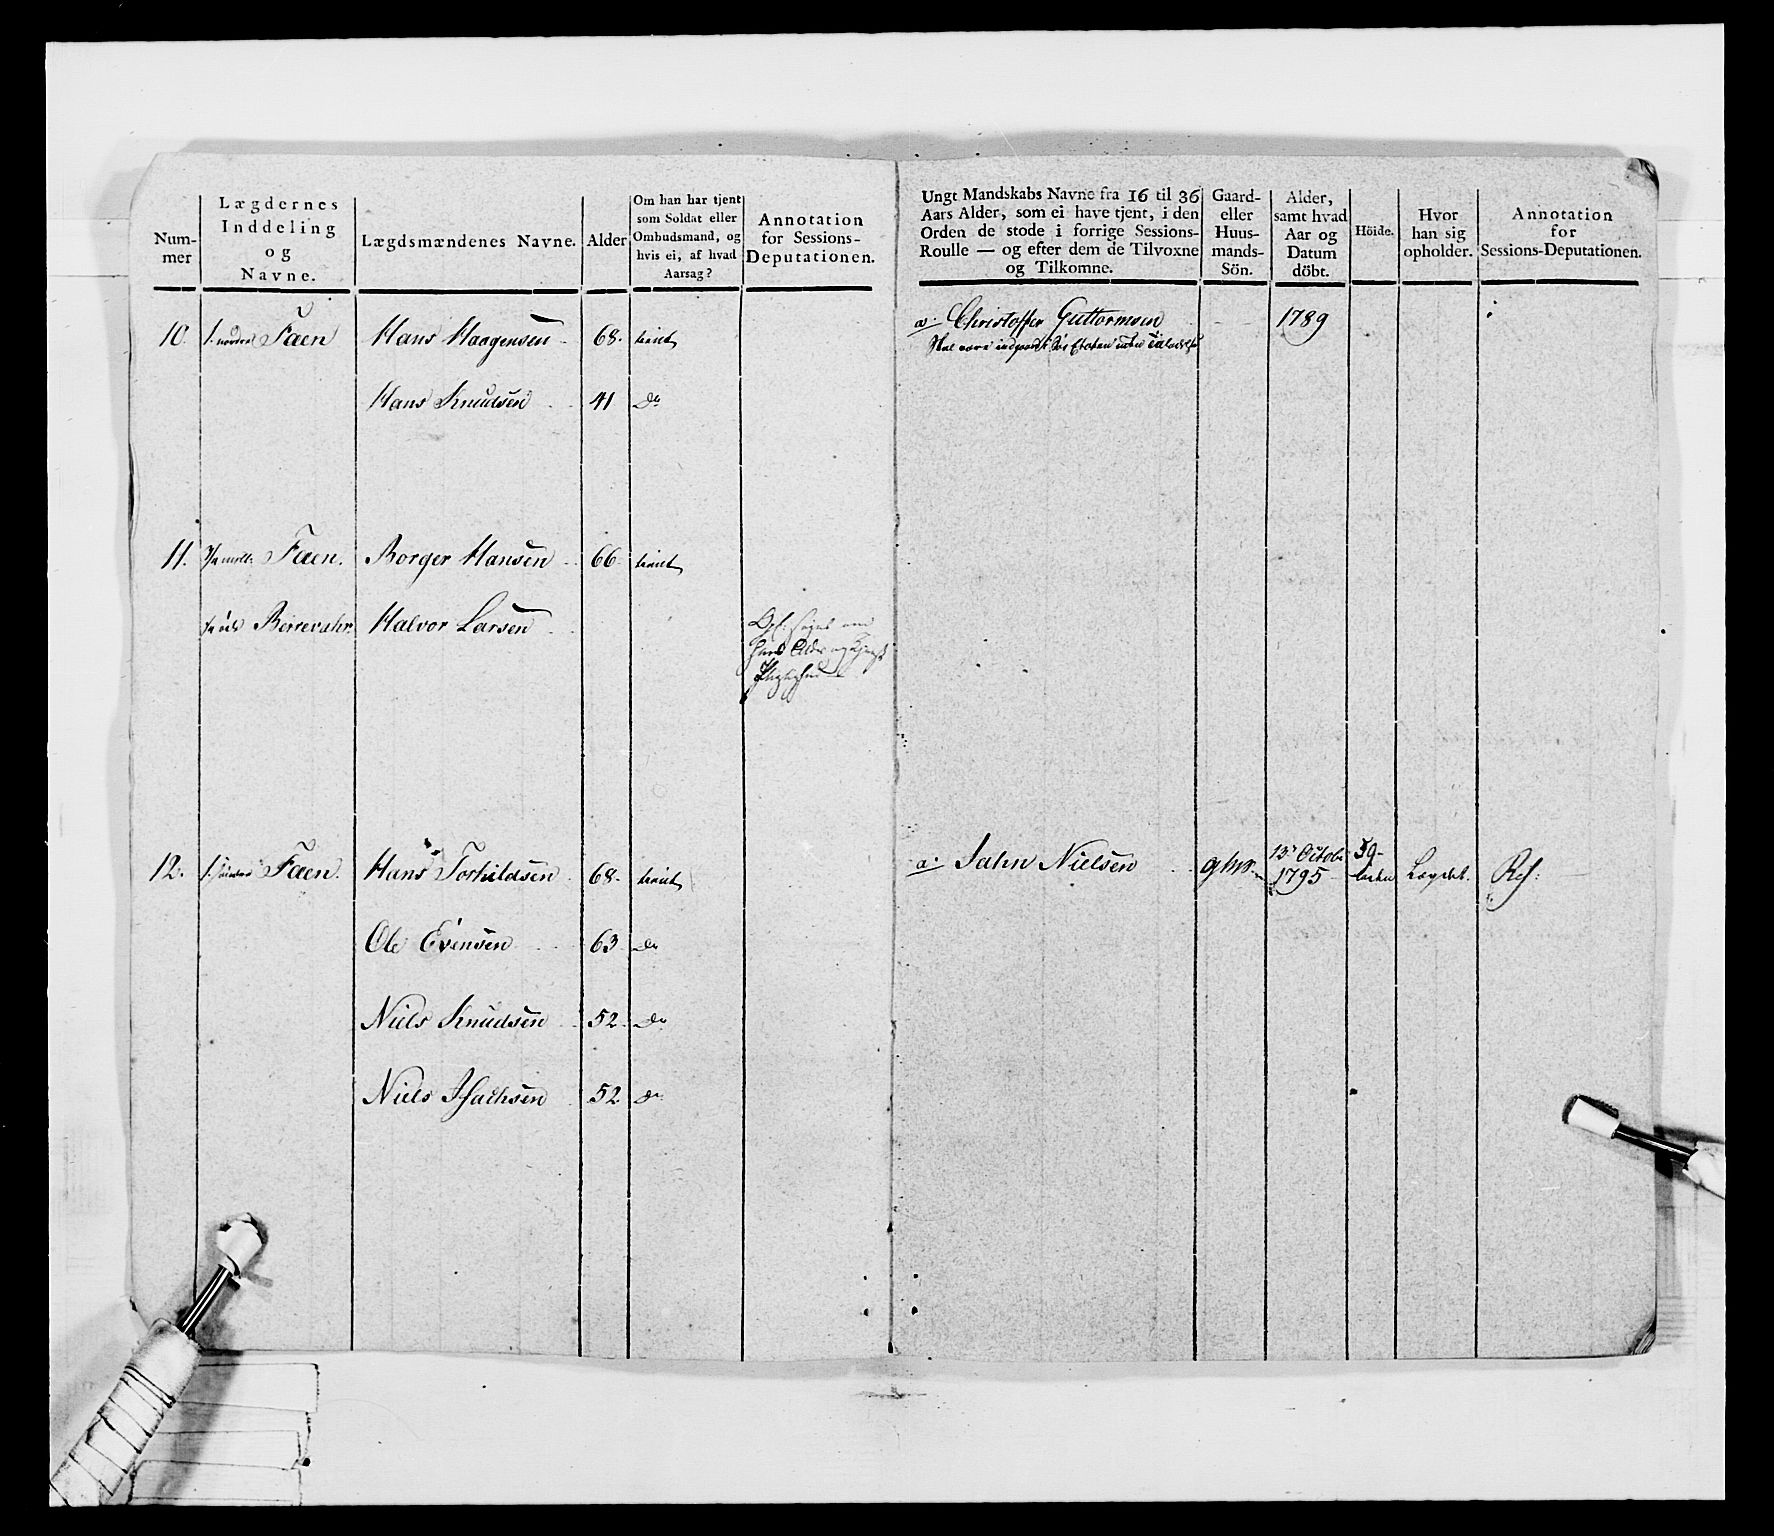 Num-
mer
Lægdernes
Inddeling
og
Navne.
Lægdsmændenes Navne.
Alder
Om han har tjent
som Soldat eller
Ombudsmand, og
hvis ei, af hvad
Aarsag?
Annotation
for Sessions-
Deputationen.
10. 1. nordre Faen Hans Haagensen 68. tient
Hans Knudsen 41 Do
11. Faen. Borger Hansen 66 tient
Berrevahr Halvor Larsen
12. 1. Faen. Hans Torkildsen 68. tient
Ole Evensen 63 Do
Niels Knudsen 52 Do
Niels Isachsen 52 Do
Ungt Mandskabs Navne fra 16 til 36
Aars Alder, som ei have tjent, i den
Orden de stode i forrige Sessions-
Roulle — og efter dem de Tilvoxne
og Tilkomne.
Gaard-
eller
Huus-
mands-
Sön.
Alder,
samt hvad
Aar og
Datum
döbt.
Höide.
Hvor
han sig
opholder.
Annotation
for
Sessions-Deputationen.
a. Christoffer Guttormsen 1789
Skal være
a. Jahn Nielsen 13 Octobr
1795 Lægdet.